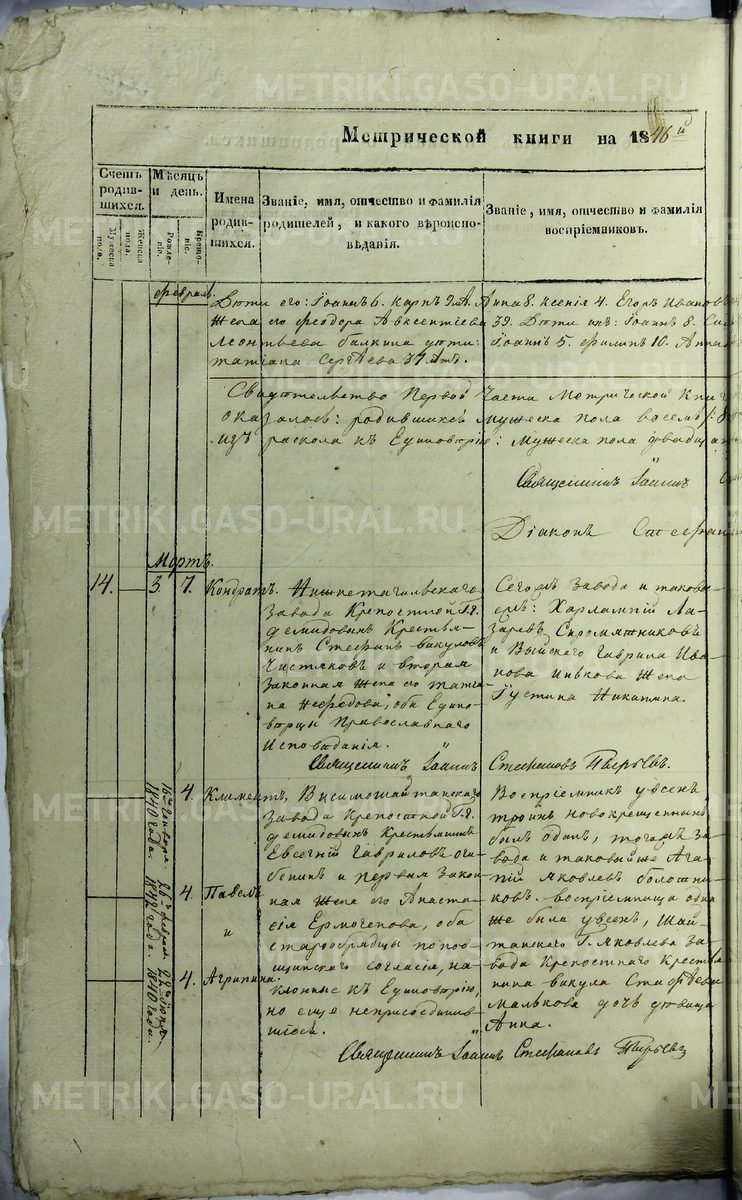 METRIKI.GASO-URAL.RU
Метрической книги на 1846й
Счетъ родив-шихся.
Мужеска пола.
Женска пола.
Мѣсяцъ и день.
Рожде-ніе.
Креще-ніе.
Имена родив-шихся.
Званіе, имя, отчество и фамилія
родителей, и какого вѣроиспо-
вѣданія.
Званіе, имя, отчество и фамилія
воспріемниковъ.
февраль
Дѣти его: Іоаннъ 6. Карпъ Анна 8. Ксенія 4. Егоръ Иванов
Жена его Феодора Авксентіева 39. Дѣти ихъ: Іоаннъ 8.
Леонтьева Балкина дѣти: Іоаннъ 5. Филипъ 10. Анна
Татіана Сергѣева 37 лѣтъ
Свидѣтельство Первой Части Метрической Книг
оказалось: родившихся Мужеска пола восемь /: 8
изъ раскола къ Единовѣрію: Мужеска пола двадца
Священникъ Іоаннъ
Діаконъ Стефан
Мартъ.
14. 3 7. Кондратъ.
Нижнетагильскаго
завода Крепостной Г.г.
Демидовыхъ Крестья-
нинъ Стефанъ Викуловъ
Чистяковъ и вторая
законная жена его Татіа-
на Нефедова, оба Едино-
вѣрцы Православнаго
Исповѣданія.
Сегожъ завода и таковы
ежъ: Харлампій Ла-
заревъ Сыромятниковъ
и Выйскаго Гаврила Ива-
нова Ивкова жена
Іустина Никитина.
Священникъ Іоаннъ Стефановъ Пырьевъ.
16го Генваря 1840 года.
4. Климентъ,
26го февраля 1842 года.
4. Павелъ
и
22го Іюня 1840 года.
4. Агрипина.
Висимошайтанскаго
завода Крепостной Г.г.
Демидовыхъ Крестьянинъ
Евсегній Гавриловъ Оги-
бенинъ и первая закон-
ная жена его Анаста-
сія Ермогенова, оба
старообрядцы попов-
щинскаго согласія, на-
клонные къ Единовѣрію,
но еще неприсоединив-
шіеся.
Воспріемникъ у всехъ
троихъ новокрещенныхъ
былъ одинъ, тогожъ за-
вода и таковойже Ага-
пій Яковлевъ Болотни-
ковъ. воспріемница одна
же была у всехъ, Шай-
танскаго Г. Яковлева за-
вода Крепостнаго Крестья-
нина Викула Стафѣева
Малькова дочь дѣвица
Анна.
Священникъ Іоаннъ Стефановъ Пырьевъ